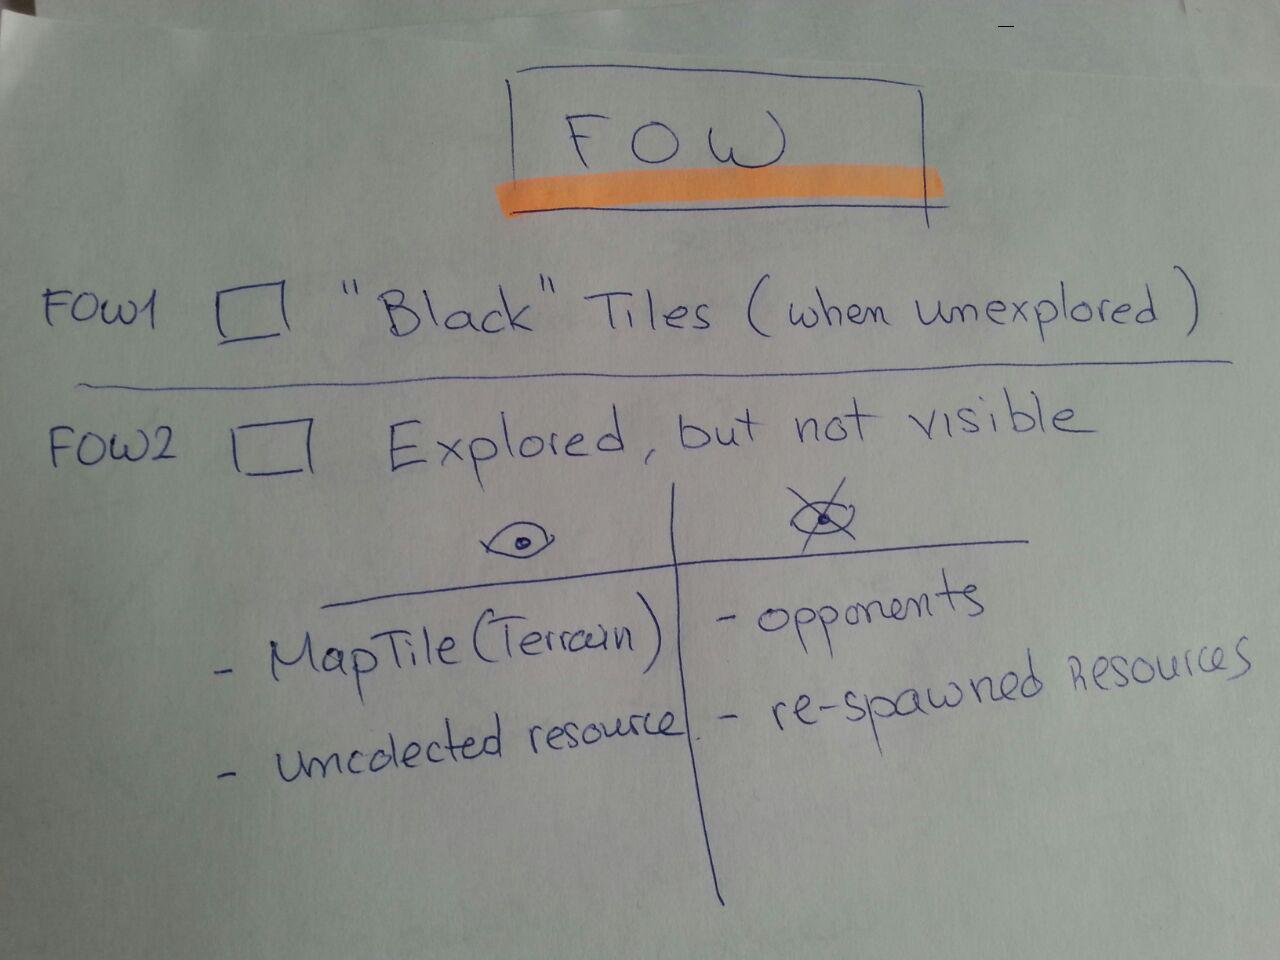 FOW
FOW1 "Black" Tiles (when unexplored)
FOW2 Explored, but not visible
- MapTile (Terrain)
- uncolected resource
- opponents
- re-spawned Resources